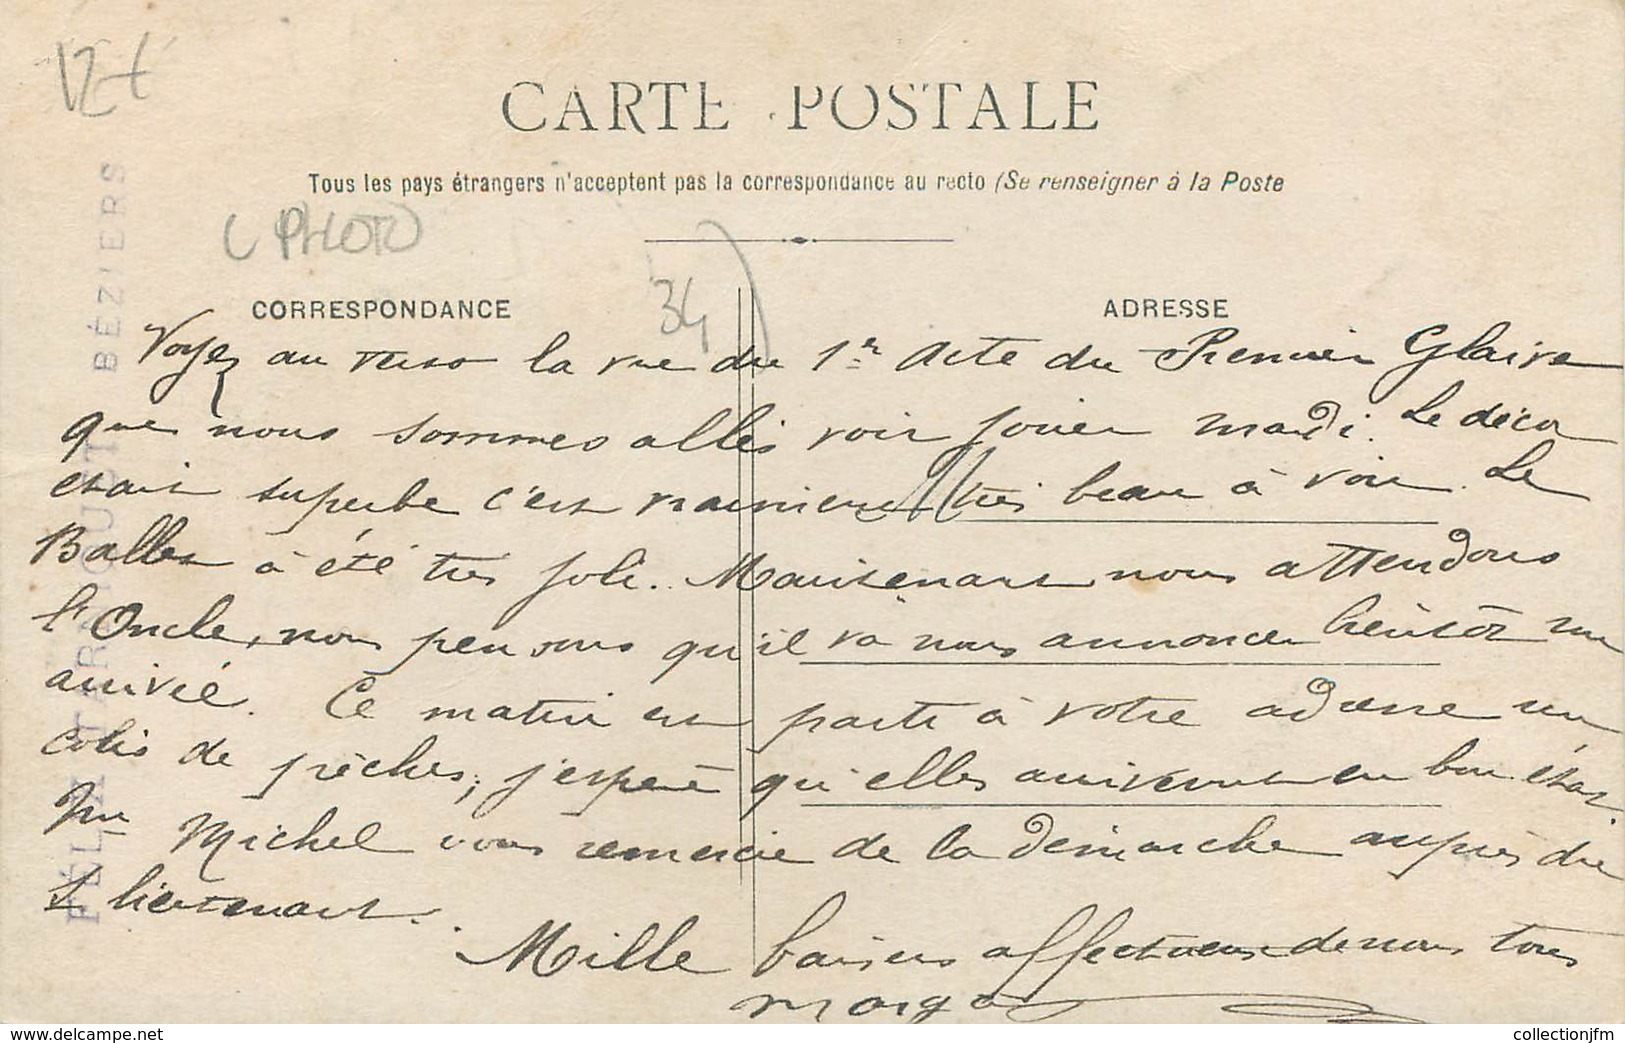 CARTE POSTALE
Tous les pays étrangers n'acceptent pas la correspondance au recto (Se renseigner à la Poste
PHOTO
34
CORRESPONDANCE
ADRESSE
FÉLIX TARANOUST BÉZIERS
Voyez au verso la vue du 1er Acte du Premier Glaive
que nous sommes allés voir jouer mardi. Le décor
était superbe c'est vraiment très beau à voir. Le
Ballet à été très joli. Maintenant nous attendons
l'Oncle, nous pensons qu'il va nous annoncer bientôt son
arrivée. Ce matin est parti à votre adresse un
colis de pêches, j'espère qu'elles arriveront en bon état.
Mr Michel vous remercie de la démarche auprès du
S lieutenant.
Mille baisers affectueux de nous tous
Margot
www.delcampe.net
collectionjfm